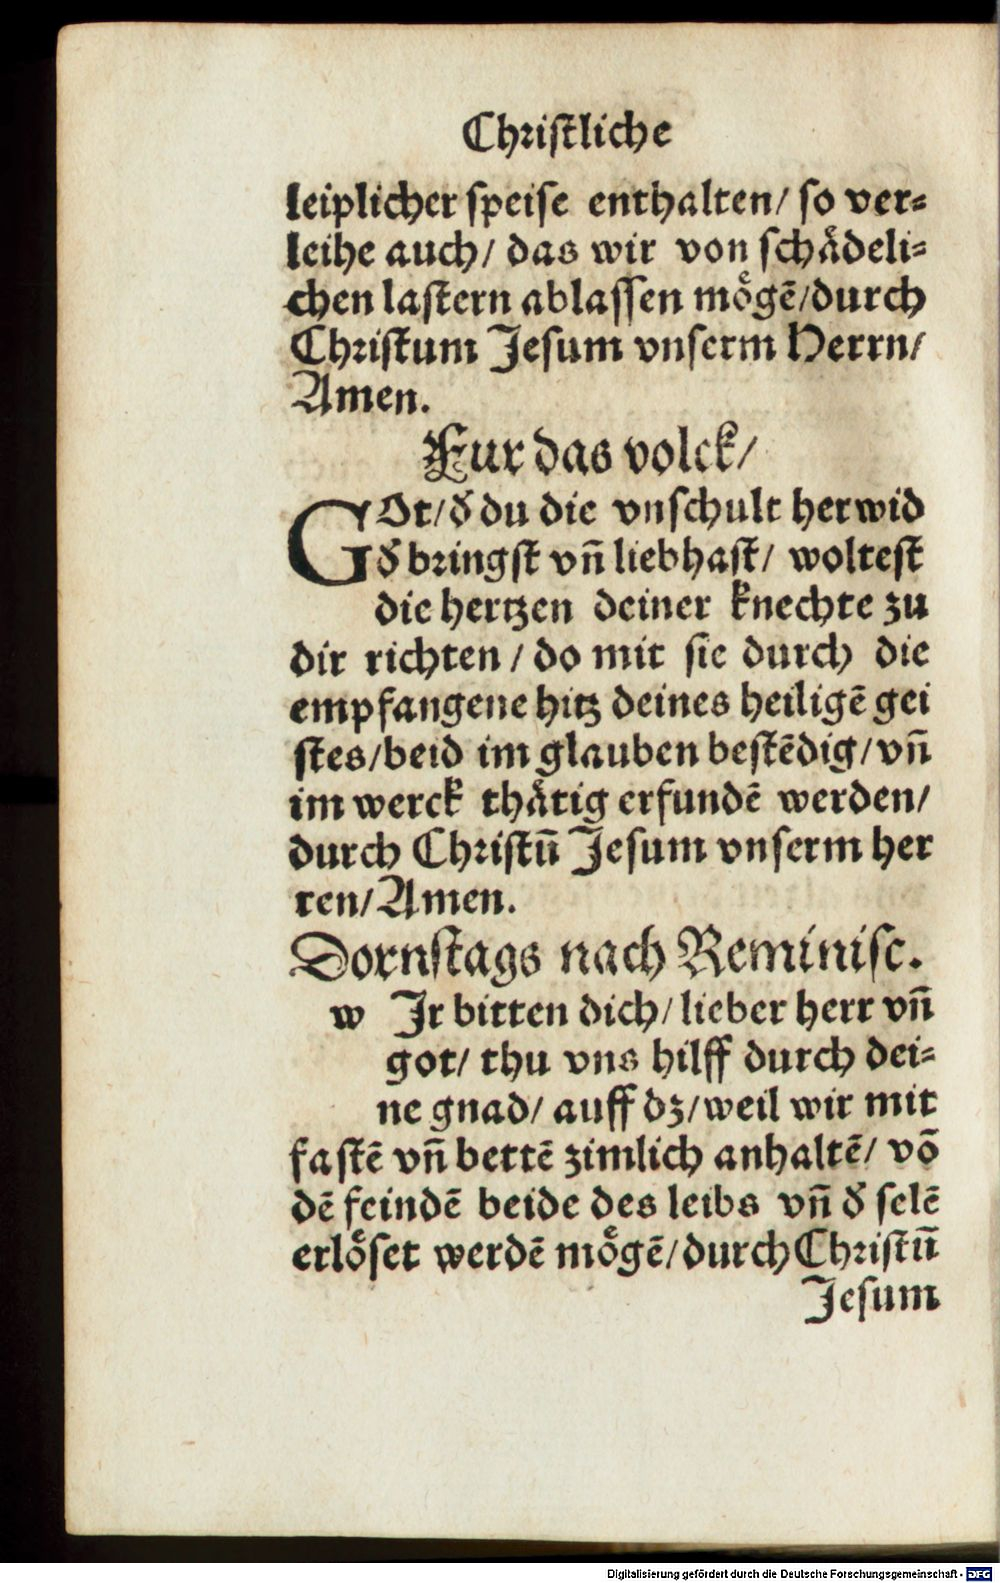 Christliche
leiplicher speise enthalten/ so ver⸗
leihe auch/ das wir von schaͤdeli⸗
chen lastern ablassen moͤgē/durch
Christum Jesum vnserm Herrn/
Amen.
Fur das volck/
GOt/ď du die vnschult herwid
ď bringst vn̄ liebhast/ woltest
die hertzen deiner knechte zu
dir richten / do mit sie durch die
empfangene hitz deines heiligē gei
stes/beid im glauben bestēdig/vn̄
im werck thaͤtig erfundē werden/
durch Christū Jesum vnserm her
ren/Amen.
Dornstags nach Reminisc.
w Jr bitten dich/ lieber herr vn̄
got/ thu vns hilff durch dei⸗
ne gnad/ auff dz/weil wir mit
fastē vn̄ bettē zimlich anhaltē/ vō
dē feindē beide des leibs vn̄ ď selē
erloͤset werdē moͤgē/durch Christū
Jesum
Digitalisierung gefördert durch die Deutsche Forschungsgemeinschaft - DFG